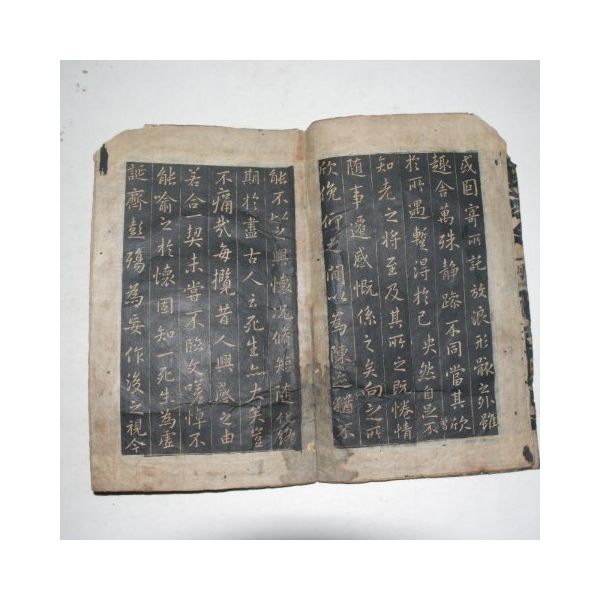 或因寄所託放浪形骸之外雖
趣舍萬殊静躁不同當其欣
於所遇暫得於己快然自足不
知老之將至及其所之既惓情
随事遷感慨係之矣向之所
欣俛仰之間以為陳迹猶不
能不以之興懷况脩短随化終
期於盡古人云死生亦大矣豈
不痛哉每攬昔人興感之由
若合一契未嘗不臨文嗟悼不
能喻之於懷固知一死生為虛
誕齊彭殤為妄作後之視今